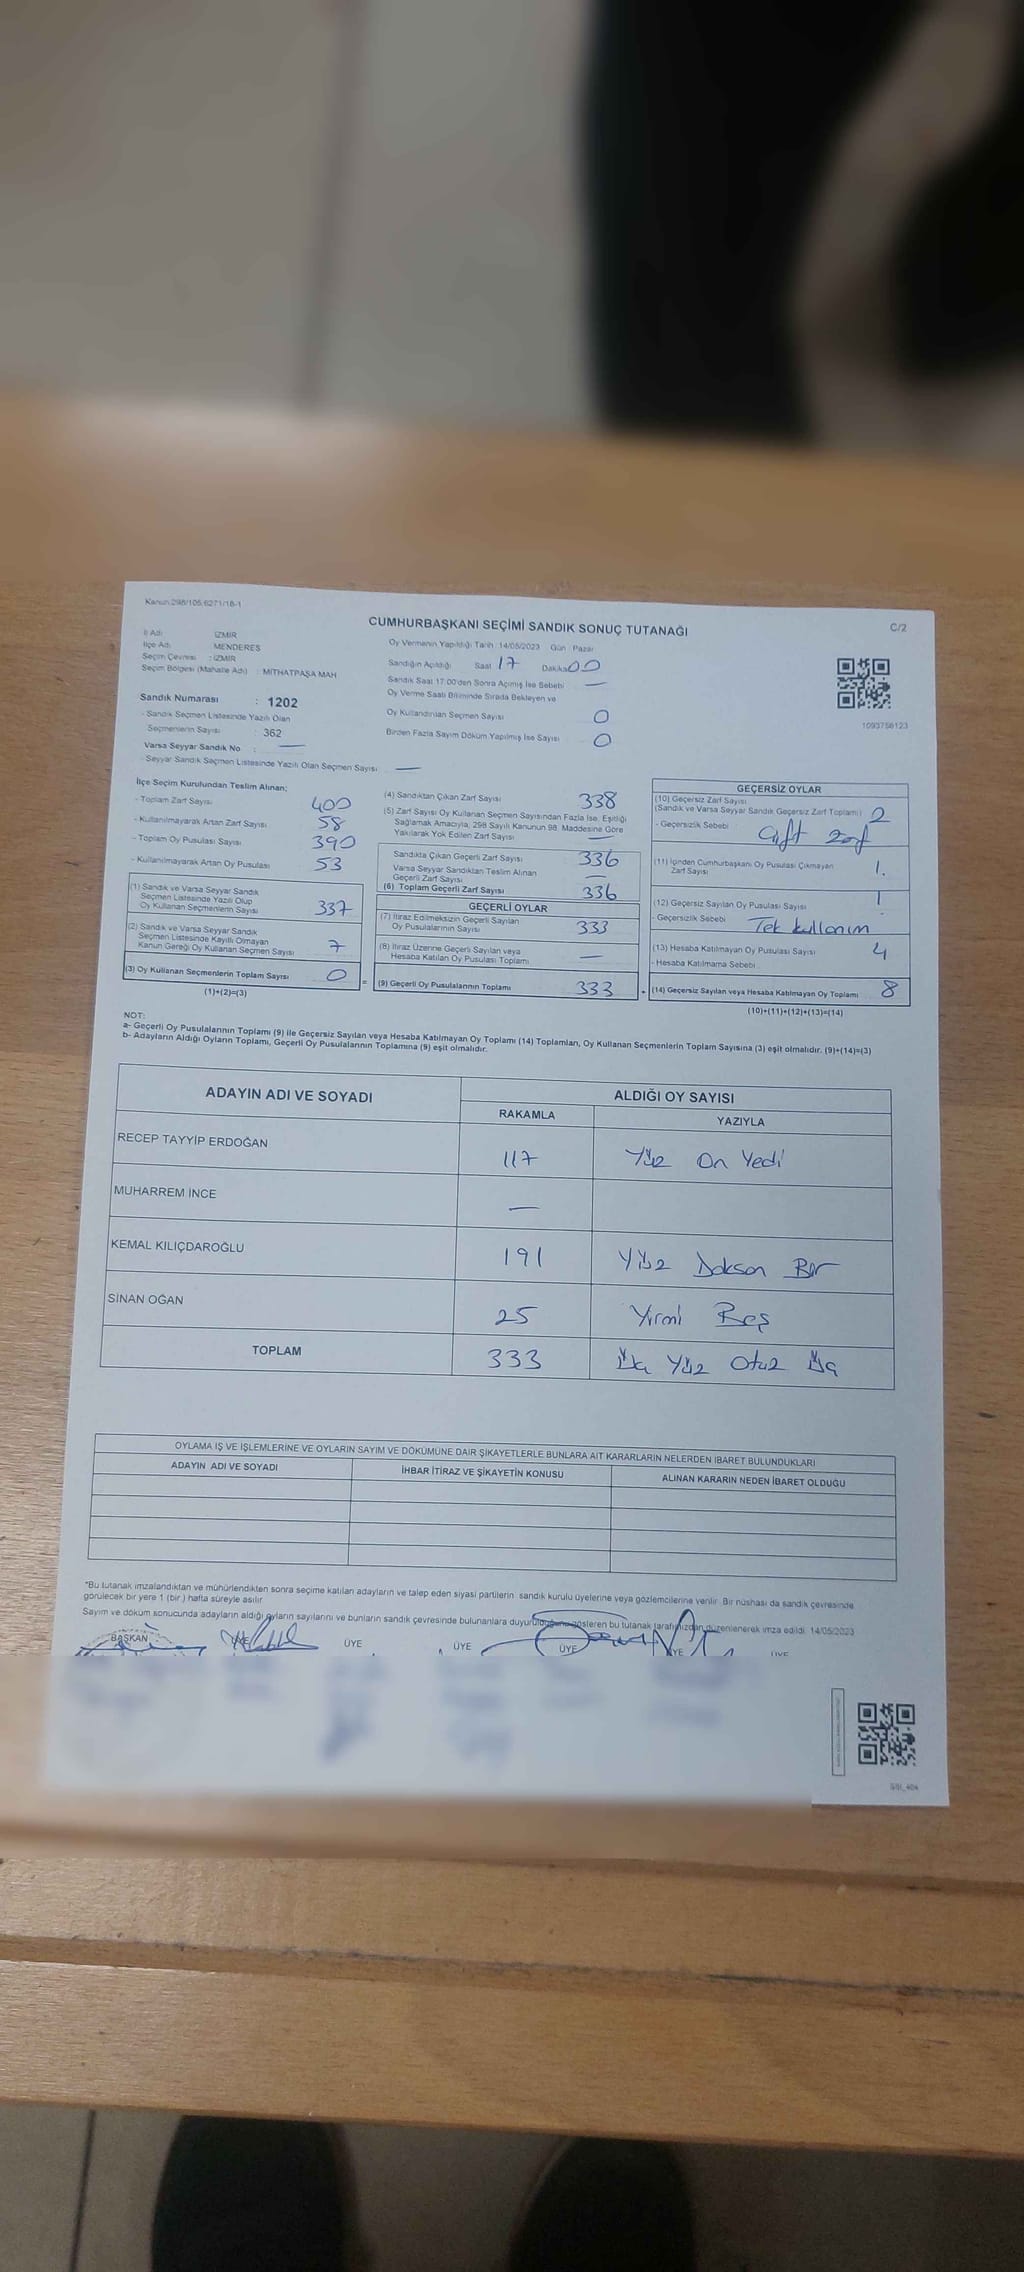 Kanun:298/105,6271/18-1
C/2
CUMHURBAŞKANI SEÇİMİ SANDIK SONUÇ TUTANAĞI
İl Adı : İZMİR
İlçe Adı : MENDERES
Seçim Çevresi : İZMİR
Seçim Bölgesi (Mahalle Adı) : MİTHATPAŞA MAH
Sandık Numarası : 1202
- Sandık Seçmen Listesinde Yazılı Olan
Seçmenlerin Sayısı : 362
Varsa Seyyar Sandık No : —
- Seyyar Sandık Seçmen Listesinde Yazılı Olan Seçmen Sayısı : —
Oy Vermenin Yapıldığı Tarih :14/05/2023 Gün : Pazar
Sandığın Açıldığı Saat 17 Dakika 00
Sandık Saat 17:00'den Sonra Açılmış İse Sebebi —
Oy Verme Saati Bitiminde Sırada Bekleyen ve
Oy Kullandırılan Seçmen Sayısı 0
Birden Fazla Sayım Döküm Yapılmış İse Sayısı 0
1093756123
İlçe Seçim Kurulundan Teslim Alınan;
- Toplam Zarf Sayısı 400
- Kullanılmayarak Artan Zarf Sayısı 58
- Toplam Oy Pusulası Sayısı 390
- Kullanılmayarak Artan Oy Pusulası 53
(1) Sandık ve Varsa Seyyar Sandık
Seçmen Listesinde Yazılı Olup
Oy Kullanan Seçmenlerin Sayısı 337
(2) Sandık ve Varsa Seyyar Sandık
Seçmen Listesinde Kayıtlı Olmayan
Kanun Gereği Oy Kullanan Seçmen Sayısı 7
(3) Oy Kullanan Seçmenlerin Toplam Sayısı 0
(1)+(2)=(3)
(4) Sandıktan Çıkan Zarf Sayısı 338
(5) Zarf Sayısı Oy Kullanan Seçmen Sayısından Fazla İse, Eşitliği
Sağlamak Amacıyla, 298 Sayılı Kanunun 98. Maddesine Göre
Yakılarak Yok Edilen Zarf Sayısı —
Sandıkta Çıkan Geçerli Zarf Sayısı 336
Varsa Seyyar Sandıktan Teslim Alınan
Geçerli Zarf Sayısı —
(6) Toplam Geçerli Zarf Sayısı 336
GEÇERLİ OYLAR
(7) İtiraz Edilmeksizin Geçerli Sayılan
Oy Pusulalarının Sayısı 333
(8) İtiraz Üzerine Geçerli Sayılan veya
Hesaba Katılan Oy Pusulası Toplamı —
= (9) Geçerli Oy Pusulalarının Toplamı 333 +
GEÇERSİZ OYLAR
(10) Geçersiz Zarf Sayısı
(Sandık ve Varsa Seyyar Sandık Geçersiz Zarf Toplamı) 2
- Geçersizlik Sebebi Çift zarf
(11) İçinden Cumhurbaşkanı Oy Pusulası Çıkmayan
Zarf Sayısı 1.
(12) Geçersiz Sayılan Oy Pusulası Sayısı 1
- Geçersizlik Sebebi Tek kullanım
(13) Hesaba Katılmayan Oy Pusulası Sayısı 4
- Hesaba Katılmama Sebebi
(14) Geçersiz Sayılan veya Hesaba Katılmayan Oy Toplamı 8
(10)+(11)+(12)+(13)=(14)
NOT:
a- Geçerli Oy Pusulalarının Toplamı (9) ile Geçersiz Sayılan veya Hesaba Katılmayan Oy Toplamı (14) Toplamları, Oy Kullanan Seçmenlerin Toplam Sayısına (3) eşit olmalıdır. (9)+(14)=(3)
b- Adayların Aldığı Oyların Toplamı, Geçerli Oy Pusulalarının Toplamına (9) eşit olmalıdır.
ADAYIN ADI VE SOYADI ALDIĞI OY SAYISI
RAKAMLA YAZIYLA
RECEP TAYYİP ERDOĞAN 117 Yüz On Yedi
MUHARREM İNCE —
KEMAL KILIÇDAROĞLU 191 Yüz Doksan Bir
SİNAN OĞAN 25 Yirmi Beş
TOPLAM 333 Üç Yüz Otuz Üç
OYLAMA İŞ VE İŞLEMLERİNE VE OYLARIN SAYIM VE DÖKÜMÜNE DAİR ŞİKAYETLERLE BUNLARA AİT KARARLARIN NELERDEN İBARET BULUNDUKLARI
ADAYIN ADI VE SOYADI İHBAR İTİRAZ VE ŞİKAYETİN KONUSU ALINAN KARARIN NEDEN İBARET OLDUĞU
*Bu tutanak imzalandıktan ve mühürlendikten sonra seçime katılan adayların ve talep eden siyasi partilerin sandık kurulu üyelerine veya gözlemcilerine verilir. Bir nüshası da sandık çevresinde
görülecek bir yere 1 (bir) hafta süreyle asılır.
Sayım ve döküm sonucunda adayların aldığı oyların sayılarını ve bunların sandık çevresinde bulunanlara duyurulduğunu gösteren bu tutanak tarafımızdan düzenlenerek imza edildi. 14/05/2023
BAŞKAN ÜYE ÜYE ÜYE ÜYE ÜYE ÜYE